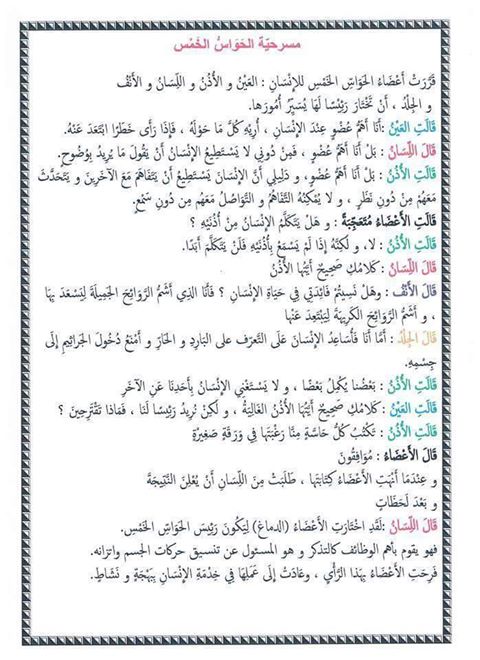 مسرحيّة الحَوَاسُّ الخَمْس
قَرَّرَتْ أَعْضَاءُ الحَوَاسِّ الخَمْسِ لِلإنْسَانِ : العَيْنُ و الأُذُنُ و اللِّسَانُ و الأَنْفُ
و الجِلْدُ ، أَنْ تَخْتَارَ رَئِيسًا لَهَا يُسَيِّرُ أُمُورَهَا.
قَالَتِ العَيْنُ :أَنَا أَهَمُّ عُضْوٍ عِنْدَ الإنْسَانِ ، أُرِيهِ كُلَّ مَا حَوْلَهُ ، فَإِذَا رَأَى خَطَرًا ابْتَعَدَ عَنْهُ.
قَالَ اللِّسَانُ : بَلْ أَنَا أَهَمُّ عُضْوٍ ، فَمِنْ دُونِي لا يَسْتَطِيعُ الإنْسَانُ أَنْ يَقُولَ مَا يُرِيدُ بِوُضُوحٍ.
قَالَتِ الأُذُنُ : بَلْ أَنَا أَهَمُّ عُضْوٍ ، و دَلِيلِي أَنَّ الإنْسَانَ يَسْتَطِيعُ أَنْ يَتَفَاهَمَ مَعَ الآخَرِينَ و يَتَحَدَّثَ
مَعَهُمْ مِنْ دُونِ نَظَرٍ ، و لا يُمْكِنُهُ التَّفَاهُمُ و التَّوَاصُلُ مَعَهُم مِن دُونِ سَمْعٍ.
قَالَتِ الأَعْضَاءُ مُتَعَجِّبَةً : و هَلْ يَتَكَلَّمُ الإنْسَانُ مِنْ أُذُنَيْهِ ؟
قَالَتِ الأُذُنُ : لا، و لَكِنَّهُ إِذَا لَمْ يَسْمَعْ بِأُذُنَيْهِ فَلَنْ يَتَكَلَّمَ أَبَدًا.
قَالَ اللِّسَانُ : كَلامُكِ صَحِيحٌ أَيَّتُهَا الأُذُنُ
قَالَ الأَنْفُ : وهَلْ نَسِيتُمْ فَائِدَتِي فِي حَيَاةِ الإنْسَانِ ؟ فَأَنَا الذِي أَشَمُّ الرَّوَائِحَ الجَمِيلَةَ لِيَسْعَدَ بِهَا
، و أَشَمُّ الرَّوَائِحَ الكَرِيهَةَ لِيَبْتَعِدَ عَنْهَا
قَالَ الجِلْدُ : أَمَّا أَنَا فَأُسَاعِدُ الإنْسَانَ عَلَى التَّعَرُّفِ عَلَى البَارِدِ و الحَارِّ و أَمْنَعُ دُخُولَ الجَرَاثِيمِ إلَى
جِسْمِهِ.
قَالَتِ الأُذُنُ : بَعْضُنا يُكَمِّلُ بَعْضًا ، و لا يَسْتَغْنِي الإنْسَانُ بِأَحَدِنَا عَنِ الآخَرِ
قَالَتِ العَيْنُ : كَلامُكِ صَحِيحٌ أَيَّتُهَا الأُذُنُ الغَالِيَةُ ، و لَكِنْ نُرِيدُ رَئِيسًا لَنَا ، فَمَاذَا تَقْتَرِحِينَ ؟
قَالَتِ الأُذُنُ : تَكْتُبُ كُلُّ حَاسَّةٍ مِنَّا رَغْبَتَهَا فِي وَرَقَةٍ صَغِيرَةٍ
قَالَ الأَعْضَاءُ : مُوَافِقُونَ
و عِنْدَمَا أَنْهَتِ الأَعْضَاءُ كِتَابَتَهَا ، طَلَبَتْ مِنَ اللِّسَانِ أَنْ يُعْلِنَ النَّتِيجَةَ
و بَعْدَ لَحَظَاتٍ
قَالَ اللِّسَانُ :لَقَدِ اخْتَارَتِ الأَعْضَاءُ (الدماغ) لِيَكُونَ رَئِيسَ الحَوَاسِ الخَمْسِ.
فهو يقوم بأهم الوظائف كالتذكر و هو المسئول عن تنسيق حركات الجسم واتزانه.
فَرِحَتِ الأَعْضَاءُ بِهَذَا الرَّأْيِ ، وعَادَتْ إلَى عَمَلِهَا فِي خِدْمَةِ الإنْسَانِ بِبَهْجَةٍ و نَشَاطٍ.